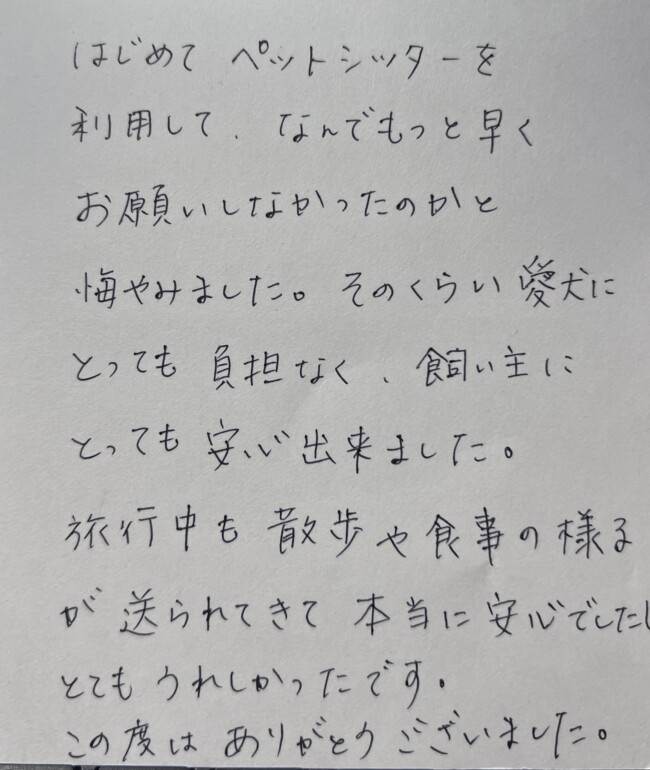 はじめて ペットシッターを
利用して、なんでもっと早く
お願いしなかったのかと
悔やみました。そのくらい愛犬に
とっても負担なく、飼い主に
とっても安心出来ました。
旅行中も散歩や食事の様子
が送られてきて本当に安心でしたし
とてもうれしかったです。
この度はありがとうございました。